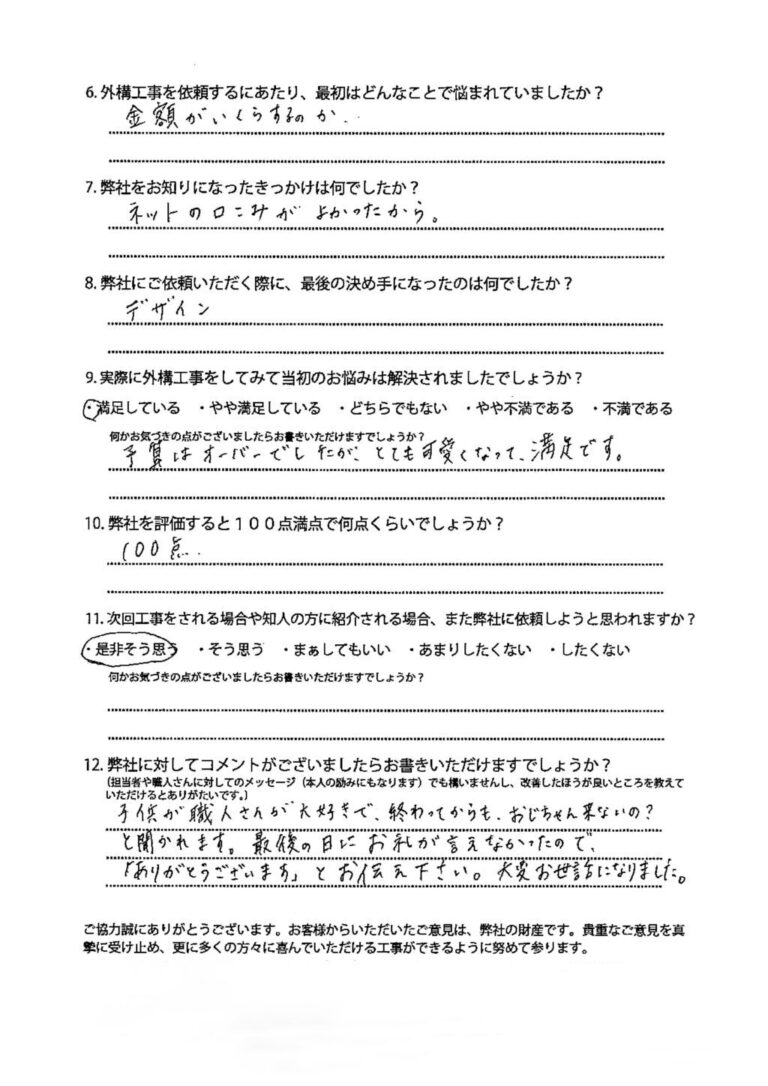 6. 外構工事を依頼するにあたり、最初はどんなことで悩まれていましたか？
金額がいくらするのか.
7. 弊社をお知りになったきっかけは何でしたか？
ネットの口こみが よかったから。
8. 弊社にご依頼いただく際に、最後の決め手になったのは何でしたか？
デザイン
9. 実際に外構工事をしてみて当初のお悩みは解決されましたでしょうか？
・満足している ・やや満足している ・どちらでもない ・やや不満である ・不満である
何かお気づきの点がございましたらお書きいただけますでしょうか？
予算はオーバーでしたが、とても可愛くなって、満足です。
10. 弊社を評価すると１００点満点で何点くらいでしょうか？
100点.
11. 次回工事をされる場合や知人の方に紹介される場合、また弊社に依頼しようと思われますか？
・是非そう思う ・そう思う ・まぁしてもいい ・あまりしたくない ・したくない
何かお気づきの点がございましたらお書きいただけますでしょうか？
12. 弊社に対してコメントがございましたらお書きいただけますでしょうか？
（担当者や職人さんに対してのメッセージ（本人の励みにもなります）でも構いませんし、改善したほうが良いところを教えて
いただけるとありがたいです。）
子供が職人さんが大好きで、終わってからも、おじちゃん来ないの？
と聞かれます。最後の日にお礼が言えなかったので、
「ありがとうございます」とお伝え下さい。大変お世話になりました。
ご協力誠にありがとうございます。お客様からいただいたご意見は、弊社の財産です。貴重なご意見を真
摯に受け止め、更に多くの方々に喜んでいただける工事ができるように努めて参ります。